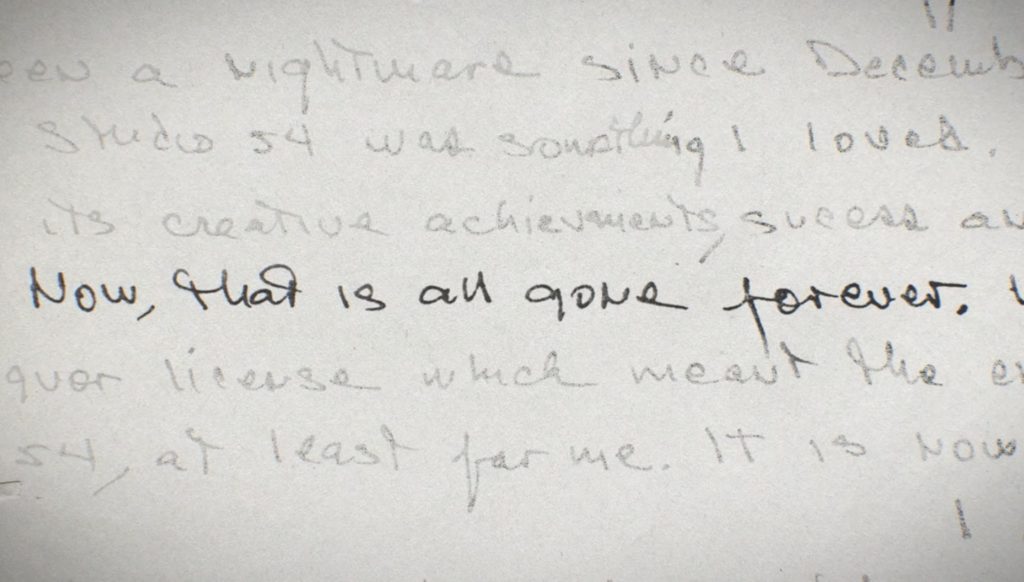 een a nightmare since Decemb
Studio 54 was something I loved.
its creative achievements, sucess an
Now, that is all gone forever.
quor license which meant the en
54, at least for me. It is now